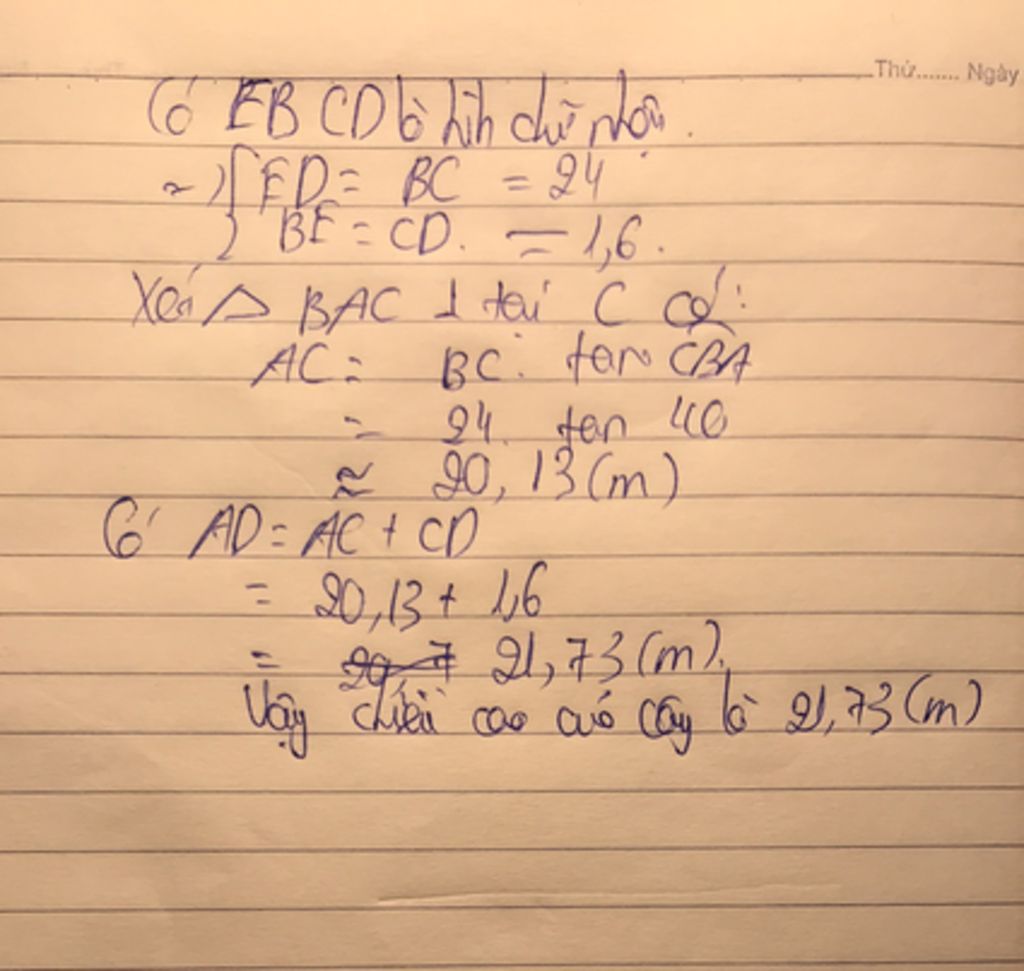 Thứ....... Ngày
Có EBCD là hình chữ nhật.
~) { ED = BC = 24
BE = CD. = 1,6.
Xét △ BAC ⊥ tại C có:
AC = BC. tan CBA
= 24. tan 40
≈ 20,13 (m)
Có AD = AC + CD
= 20,13 + 1,6
= 21,73 (m).
Vậy chiều cao của cây là 21,73 (m)